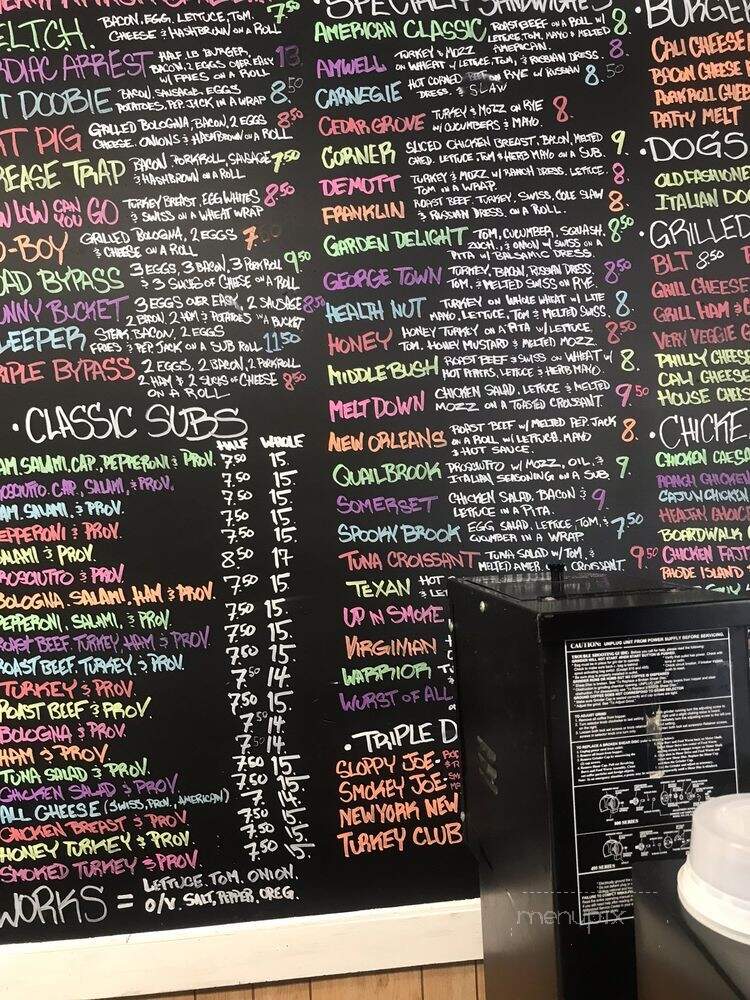 BACON, EGG, LETTUCE, TOM. 7.50
ELTCH. CHEESE & HASHBROWN ON A ROLL
DIAC ARREST HALF LB BURGER, 13.
BACON, 2 EGGS OVER EASY
W/ FRIES ON A ROLL
T DOOBIE BACON, SAUSAGE, EGGS 8.50
POTATOES, PEP. JACK IN A WRAP
AT PIG GRILLED BOLOGNA, BACON, 2 EGGS 8.50
CHEESE, ONIONS & HASHBROWN ON A ROLL
REASE TRAP BACON, PORKROLL, SAUSAGE 7.50
& HASHBROWN ON A ROLL
W LOW CAN YOU GO TURKEY BREAST, EGG WHITES 8.50
& SWISS ON A WHEAT WRAP
O-BOY GRILLED BOLOGNA, 2 EGGS 7.50
& CHEESE ON A ROLL
OAD BYPASS 3 EGGS, 3 BACON, 3 PORKROLL 9.50
& 3 SLICES OF CHEESE ON A ROLL
UNNY BUCKET 3 EGGS OVER EASY, 2 SAUSAGE 8.50
2 BACON, 2 HAM & POTATOES IN A BUCKET
LEEPER STEAK, BACON, 2 EGGS 11.50
FRIES & PEP. JACK ON A SUB ROLL
RIPLE BYPASS 2 EGGS, 2 BACON, 2 PORKROLL
2 HAM & 2 SLICES OF CHEESE 8.50
ON A ROLL
• CLASSIC SUBS
HALF WHOLE
AM, SALAMI, CAP., PEPPERONI & PROV. 7.50 15.
ROSCIUTTO, CAP., SALAMI, & PROV. 7.50 15.
AM, SALAMI, & PROV. 7.50 15.
EPPERONI & PROV. 7.50 15.
SALAMI & PROV. 7.50 15.
ROSCIUTTO & PROV. 8.50 17
BOLOGNA, SALAMI, HAM & PROV. 7.50 15.
PEPPERONI, SALAMI, & PROV. 7.50 15.
ROAST BEEF, TURKEY, HAM & PROV. 7.50 15.
ROAST BEEF, TURKEY, & PROV. 7.50 15.
TURKEY & PROV. 7.50 14.
ROAST BEEF & PROV. 7.50 15.
BOLOGNA & PROV. 7.50 14.
HAM & PROV. 7.50 14.
TUNA SALAD & PROV. 7.50 15.
CHICKEN SALAD & PROV. 7.50 15.
ALL CHEESE (SWISS, PROV., AMERICAN) 7. 14.
CHICKEN BREAST & PROV. 7.50 15.
HONEY TURKEY & PROV. 7.50 15.
SMOKED TURKEY & PROV. 7.50 15.
WORKS = LETTUCE, TOM, ONION,
O/V, SALT, PEPPER, OREG.
• SPECIALTY SANDWICHES
AMERICAN CLASSIC ROAST BEEF ON A ROLL W/ 8.
LETTUCE, TOM, MAYO & MELTED
AMERICAN.
AMWELL TURKEY & MOZZ 8.
ON WHEAT W/ LETTUCE, TOM, & RUSSIAN DRESS.
CARNEGIE HOT CORNED BEEF ON RYE W/ RUSSIAN 8.50
DRESS. & SLAW
CEDAR GROVE TURKEY & MOZZ ON RYE 8.
W/ CUCUMBERS & MAYO.
CORNER SLICED CHICKEN BREAST, BACON, MELTED 9.
CHED. LETTUCE TOM & HERB MAYO ON A SUB.
DEMOTT TURKEY & MOZZ W/ RANCH DRESS. LETTUCE. 8.
TOM IN A WRAP.
FRANKLIN ROAST BEEF, TURKEY, SWISS, COLE SLAW 8.
& RUSSIAN DRESS. ON A ROLL.
GARDEN DELIGHT TOM, CUCUMBER, SQUASH, 8.50
ZUCH., & ONION W/ SWISS ON A
PITA W/ BALSAMIC DRESS.
GEORGE TOWN TURKEY, BACON, RUSSIAN DRESS. 8.50
TOM, & MELTED SWISS ON RYE.
HEALTH NUT TURKEY ON WHOLE WHEAT W/ LITE 8.
MAYO, LETTUCE, TOM & MELTED SWISS.
HONEY HONEY TURKEY ON A PITA W/ LETTUCE, 8.50
TOM, HONEY MUSTARD & MELTED MOZZ.
MIDDLEBUSH ROAST BEEF & SWISS ON WHEAT W/ 8.
HOT PEPPERS, LETTUCE & HERB MAYO.
MELT DOWN CHICKEN SALAD, LETTUCE & MELTED 9.50
MOZZ ON A TOASTED CROISSANT.
NEW ORLEANS ROAST BEEF W/ MELTED PEP. JACK 8.
ON A ROLL W/ LETTUCE, MAYO
& HOT SAUCE.
QUAILBROOK PROSCIUTTO W/ MOZZ, OIL, & 9.
ITALIAN SEASONING ON A SUB.
SOMERSET CHICKEN SALAD, BACON & 9
LETTUCE IN A PITA.
SPOOKY BROOK EGG SALAD, LETTUCE, TOM, & 7.50
CUCUMBER IN A WRAP.
TUNA CROISSANT TUNA SALAD W/ TOM, & 9.50
MELTED AMER. ON A CROISSANT.
TEXAN HOT
UP N SMOKE
VIRGINIAN
WARRIOR
WURST OF ALL
• TRIPLE D
SLOPPY JOE-
SMOKEY JOE-
NEW YORK NEW
TURKEY CLUB
• BURGER
CALI CHEESE
BACON CHEESE
PORK ROLL CHEE
PATTY MELT
• DOGS
OLD FASHIONE
ITALIAN DO
• GRILLED
BLT 8.50
GRILL CHEESE
GRILL HAM &
VERY VEGGIE G
PHILLY CHEESE
CALI CHEESE
HOUSE CHEES
• CHICKE
CHICKEN CAESA
RANCH CHICKEN
CAJUN CHICKEN
HEALTHY CHOIC
BOARDWALK C
CHICKEN FAJI
RHODE ISLAND
CAUTION: UNPLUG UNIT FROM POWER SUPPLY BEFORE SERVICING.
TROUBLE SHOOTING GUIDE:
TO REPLACE A BROKEN SHEAR DISC
800 SERIES
400 SERIES
menupix